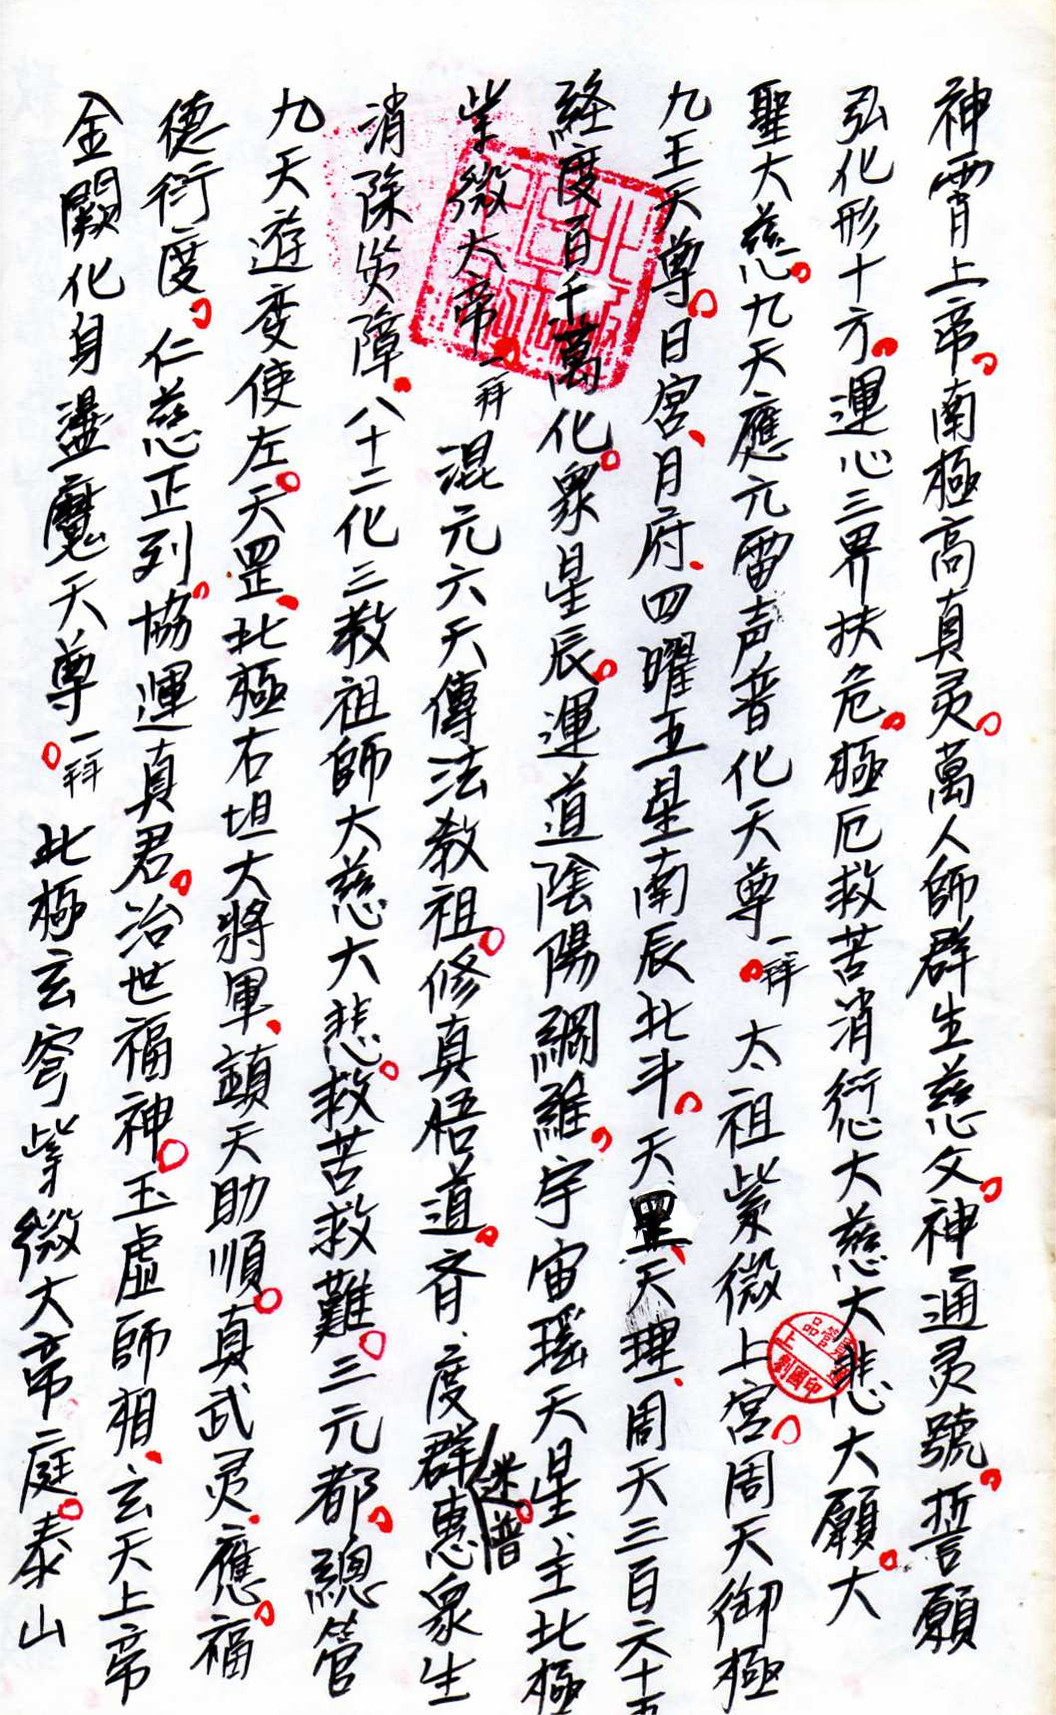 神霄上帝。南極高真灵。萬人師群生慈父。神通灵號。誓願
弘化形十方。運心三界扶危。極厄救苦消愆大慈大悲大願。大
聖大慈。九天應元雷声普化天尊。一拜 太祖紫微上宮。周天御極
九王天尊。日宮、月府、四曜五星南辰北斗。天罡、天理、周天三百六十五
経度百千萬化。衆星辰。運道陰陽綱維，宇宙瑤天星、主北極
紫微大帝。一拜 混元六天傳法教祖。修真悟道。齐、度群迷。普惠衆生
消除災障。八十二化三教祖師大慈大悲。救苦救難。三元都。總管
九天遊変使左。天罡、北極右垣大將軍、鎮天助順。真武灵、應。福
德衍度。仁慈正列。協運真君。治世福神。玉虛師相、玄天上帝
金闕化身盪魔天尊。一拜 北極玄穹紫微大帝庭。泰山